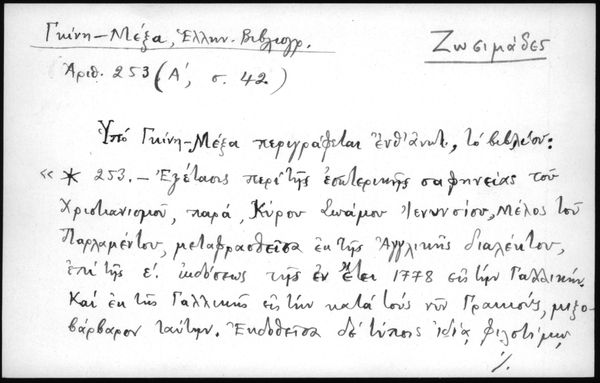 Γκίνη–Μέξα, Ἑλλην. Βιβλιογρ.
Ζωσιμάδες
Ἀριθ. 253 (Α', σ. 42)
Ὑπό Γκίνη–Μέξα περιγράφεται ἔνθ' ἀνωτ., τό βιβλίον:
«✶ 253.– Ἐξέτασις περί τῆς ἐσωτερικῆς σαφηνείας τοῦ
Χριστιανισμοῦ, παρά, Κύρου Σωάμου Ἰενυνσίου, Μέλος τοῦ
Παρλαμέντου, μεταφρασθεῖσα ἐκ τῆς Ἀγγλικῆς διαλέκτου,
ἐπί τῆς ε'. ἐκδόσεως τῆς ἐν ἔτει 1778 εἰς τήν Γαλλικήν.
Καί ἐκ τῆς Γαλλικῆς εἰς τήν κατά τούς νῦν Γραικούς, μιξο-
βάρβαρον ταύτην. Ἐκδοθεῖσα δέ τύποις ἰδίᾳ φιλοτίμῳ
·/.